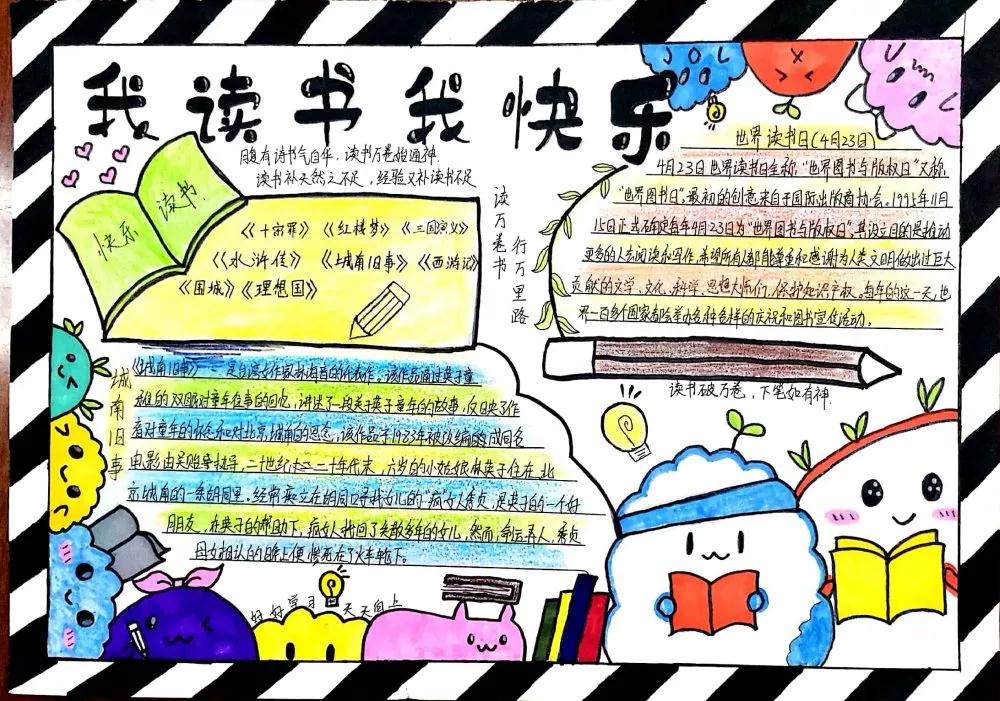 我读书我快乐
腹有诗书气自华，读书万卷始通神
读书补天然之不足，经验又补读书不足
快乐
读书
《十宗罪》《红楼梦》《三国演义》
《水浒传》《城南旧事》《西游记》
《围城》《理想国》
读万卷书
行万里路
世界读书日(4月23日)
4月23日世界读书日全称"世界图书与版权日"又称
"世界图书日"最初的创意来自于国际出版商协会。1995年11月
15日正式确定每年4月23日为"世界图书与版权日"，其设立目的是推动
更多的人去阅读和写作，希望所有人都能尊重和感谢为人类文明作出过巨大
贡献的文学、文化、科学、思想大师们，保护知识产权。每年的这一天，世
界一百多个国家都会举办各种各样的庆祝和图书宣传活动。
读书破万卷，下笔如有神
城南旧事
《城南旧事》是台湾女作家林海音的代表作，该作品通过英子童
稚的双眼对童年往事的回忆，讲述了一段关于英子童年的故事，反映了作
者对童年的怀念和对北京城南的思念，该作品于1983年被改编成同名
电影由吴贻弓执导，二十世纪二十年代末，六岁的小姑娘林英子住在北
京城南的一条胡同里。经常痴立在胡同口寻找女儿的"疯"女人秀贞，是英子的一个好
朋友，在英子的帮助下，疯女人找回了失散多年的女儿，然而，命运弄人，秀贞
母女相认的晚上便惨死在了火车轮下。
好好学习 天天向上